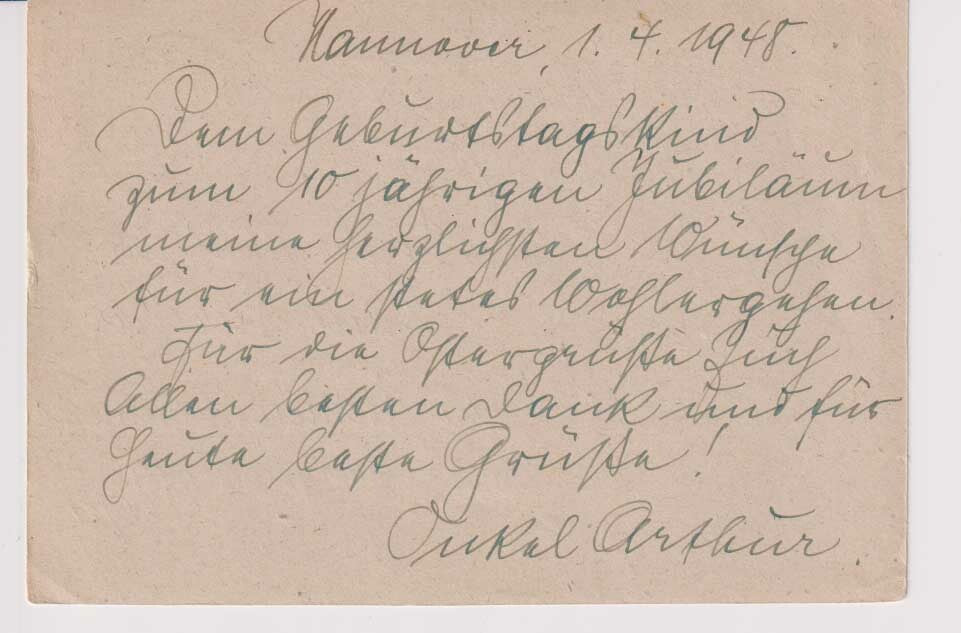 Hannover, 1. 4. 1948.
Dem Geburtstagskind
zum 10 jährigen Jubiläum
meine herzlichsten Wünsche
für ein stetes Wohlergehen.
Für die Ostergrüße Euch
Allen besten Dank und für
heute beste Grüße!
Onkel Arthur.